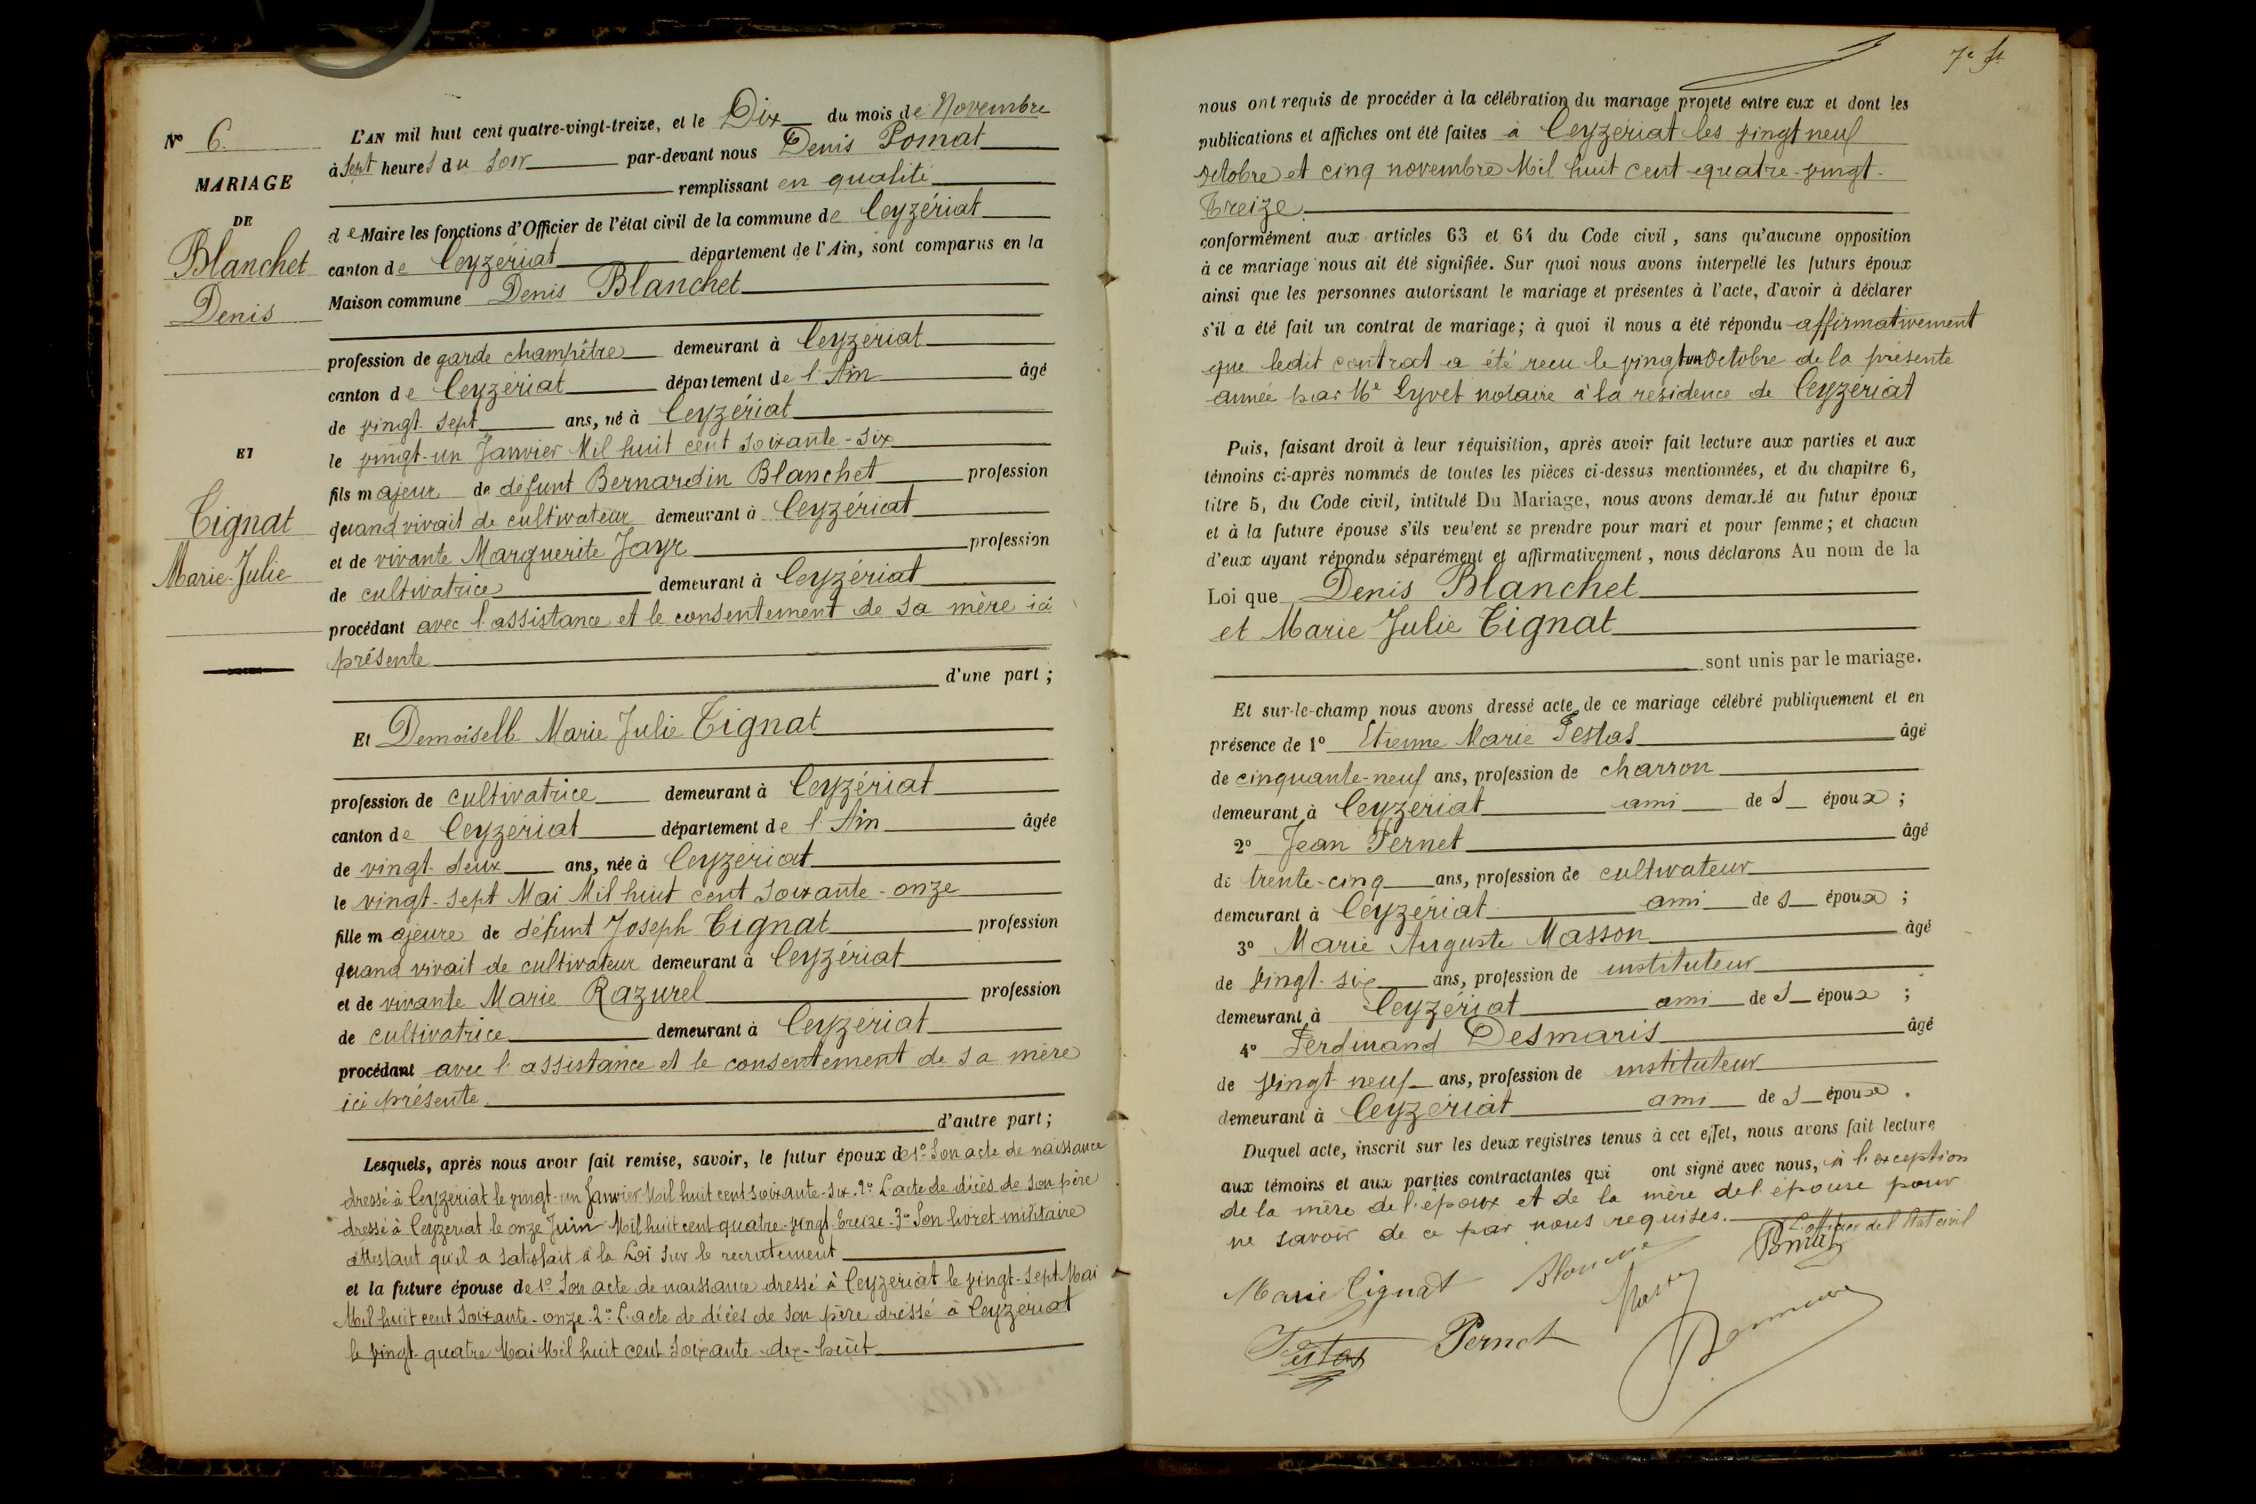 N° 6.
MARIAGE
DE
Blanchet
Denis
ET
Tignat
Marie-Julie
L'AN mil huit cent quatre-vingt-treize, et le Dix du mois de Novembre
à Sept heures du Soir par-devant nous Denis Pomat
remplissant en qualité
de Maire les fonctions d'Officier de l'état civil de la commune de Ceyzériat
canton de Ceyzériat département de l'Ain, sont comparus en la
Maison commune Denis Blanchet
profession de garde champêtre demeurant à Ceyzériat
canton de Ceyzériat département de l'Ain âgé
de vingt-sept ans, né à Ceyzériat
le vingt-un Janvier Mil huit cent soixante-six
fils majeur de défunt Bernardin Blanchet profession
quand vivait de cultivateur demeurant à Ceyzériat
et de vivante Marguerite Jayr profession
de cultivatrice demeurant à Ceyzériat
procédant avec l'assistance et le consentement de sa mère ici
présente
d'une part ;
Et Demoiselle Marie Julie Tignat
profession de cultivatrice demeurant à Ceyzériat
canton de Ceyzériat département de l'Ain âgée
de vingt-deux ans, née à Ceyzériat
le vingt-sept Mai Mil huit cent soixante-onze
fille majeure de défunt Joseph Tignat profession
quand vivait de cultivateur demeurant à Ceyzériat
et de vivante Marie Razurel profession
de cultivatrice demeurant à Ceyzériat
procédant avec l'assistance et le consentement de sa mère
ici présente
d'autre part ;
Lesquels, après nous avoir fait remise, savoir, le futur époux de 1° Son acte de naissance
dressé à Ceyzériat le vingt-un Janvier Mil huit cent soixante-six. 2° L'acte de décès de son père
dressé à Ceyzériat le onze Juin Mil huit cent quatre-vingt-treize - 3° Son livret militaire
attestant qu'il a satisfait à la Loi sur le recrutement
et la future épouse de 1° Son acte de naissance dressé à Ceyzériat le vingt-sept Mai
Mil huit cent soixante-onze - 2° L'acte de décès de son père dressé à Ceyzériat
le vingt-quatre Mai Mil huit cent soixante-dix-huit
nous ont requis de procéder à la célébration du mariage projeté entre eux et dont les
publications et affiches ont été faites à Ceyzériat les vingt neuf
octobre et cinq novembre Mil huit cent quatre-vingt-
treize
conformément aux articles 63 et 64 du Code civil, sans qu'aucune opposition
à ce mariage nous ait été signifiée. Sur quoi nous avons interpellé les futurs époux
ainsi que les personnes autorisant le mariage et présentes à l'acte, d'avoir à déclarer
s'il a été fait un contrat de mariage ; à quoi il nous a été répondu affirmativement
que ledit contrat a été reçu le vingt-un Octobre de la présente
année par Me Lyvet notaire à la résidence de Ceyzériat
Puis, faisant droit à leur réquisition, après avoir fait lecture aux parties et aux
témoins ci-après nommés de toutes les pièces ci-dessus mentionnées, et du chapitre 6,
titre 5, du Code civil, intitulé Du Mariage, nous avons demandé au futur époux
et à la future épouse s'ils veulent se prendre pour mari et pour femme ; et chacun
d'eux ayant répondu séparément et affirmativement, nous déclarons Au nom de la
Loi que Denis Blanchet
et Marie Julie Tignat
sont unis par le mariage.
Et sur-le-champ nous avons dressé acte de ce mariage célébré publiquement et en
présence de 1° Etienne Marie Festas âgé
de cinquante-neuf ans, profession de charron
demeurant à Ceyzériat ami de s époux ;
2° Jean Pernet âgé
de trente-cinq ans, profession de cultivateur
demeurant à Ceyzériat ami de s époux ;
3° Marie Auguste Masson âgé
de vingt-six ans, profession de instituteur
demeurant à Ceyzériat ami de s époux ;
4° Ferdinand Desmaris âgé
de vingt-neuf ans, profession de instituteur
demeurant à Ceyzériat ami de s époux.
Duquel acte, inscrit sur les deux registres tenus à cet effet, nous avons fait lecture
aux témoins et aux parties contractantes qui ont signé avec nous, à l'exception
de la mère de l'époux et de la mère de l'épouse pour
ne savoir de ce par nous requises.
L'officier de l'Etat civil
Marie Tignat Pomat
Festas Pernet